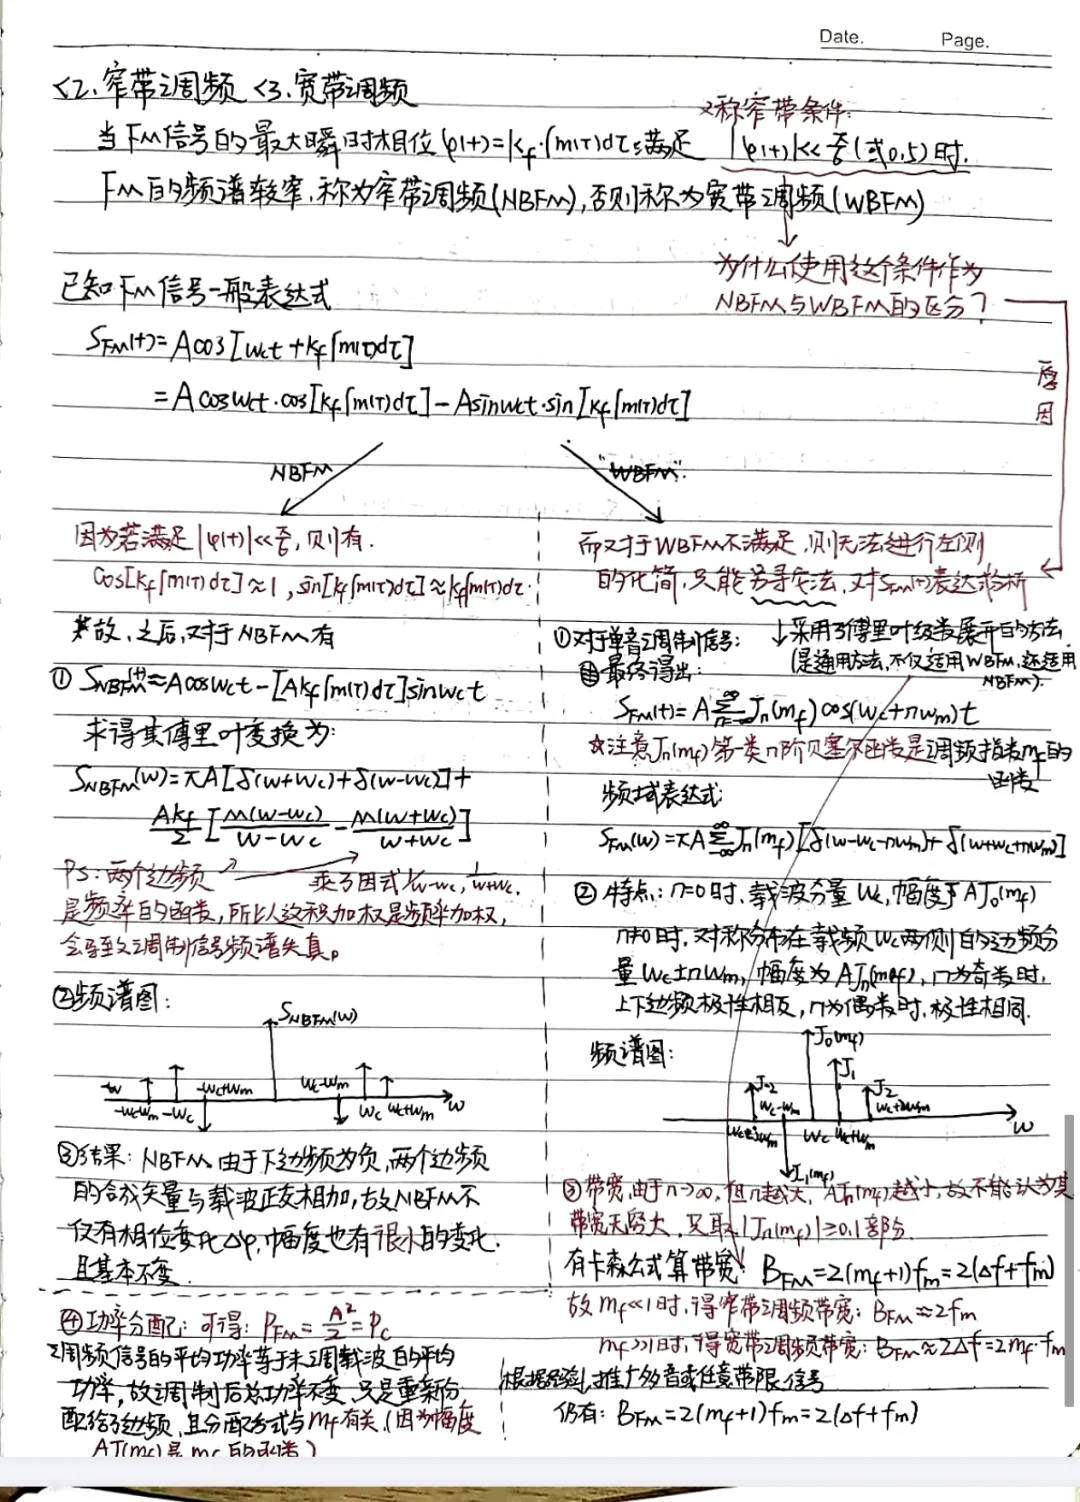 Date.
Page.
<2、窄带调频 <3、宽带调频
又称窄带条件:
当FM信号的最大瞬时相位φ(t)=kf·∫m(τ)dτ满足 |φ(t)|<<π/6(或0.5)时.
FM的频谱较窄,称为窄带调频(NBFM),否则称为宽带调频(WBFM)
为什么使用这个条件作为
NBFM与WBFM的区分?
原因
已知FM信号一般表达式
SFM(t)=Acos[wct+kf∫m(τ)dτ]
=Acoswct·cos[kf∫m(τ)dτ]-Asinwct·sin[kf∫m(τ)dτ]
NBFM
"WBFM"
因为若满足|φ(t)|<<π/6,则有.
cos[kf∫m(τ)dτ]≈1,sin[kf∫m(τ)dτ]≈kf∫m(τ)dτ.
故,之后,对于NBFM有
① SNBFM(t)≈Acoswct-[Akf∫m(τ)dτ]sinwct
求得其傅里叶变换为:
SNBFM(w)=πA[δ(w+wc)+δ(w-wc)]+
Akf/2[M(w-wc)/w-wc - M(w+wc)/w+wc]
PS:两个边频 乘了因式1/w-wc,1/w+wc.
是频率的函数,所以这种加权是频率加权,
会导致调制信号频谱失真。
②频谱图:
SNBFM(w)
-w -wc-wm -wc -wc+wm wc-wm wc wc+wm w
③结果:NBFM由于下边频为负,两个边频
的合成矢量与载波正交相加,故NBFM不
仅有相位变化Δφ,幅度也有很小的变化.
且基本不变
④功率分配:可得:PFM=A²/2=Pc
调频信号的平均功率等于未调载波的平均
功率,故调制后总功率不变,只是重新分
配给边频,且分配方式与mf有关.(因为幅度
AJ(mf)是mf的函数)
而对于WBFM不满足,则无法进行左侧
的化简,只能另寻它法,对SFM(t)表达式分析
①对于单音调制信号: ↓采用了傅里叶级数展开的方法
(是通用方法,不仅适用WBFM,还适用
NBFM).
最终得出:
SFM(t)=A∑Jn(mf)cos(wc+nwm)t
☆注意Jn(mf)第一类n阶贝塞尔函数是调频指数mf的
函数
频域表达式:
SFM(w)=πA∑Jn(mf)[δ(w-wc-nwm)+δ(w+wc+nwm)]
②特点:n=0时,载波分量wc,幅度于AJ0(mf)
n≠0时,对称分布在载频wc两侧的边频分
量wc±nwm,幅度为AJn(mf),n为奇数时,
上下边频极性相反,n为偶数时,极性相同.
频谱图:
J0(mf)
J1
J-2
J2
wc-wm
wc+2wm
wc-2wm wc wc+wm w
J-1(mf)
③带宽,由于n→∞,但n越大,AJn(mf)越小,故不能认为其
带宽无穷大,只取|Jn(mf)|≥0.1部分.
有卡森公式算带宽:BFM=2(mf+1)fm=2(Δf+fm)
故mf<<1时,得窄带调频带宽:BFM≈2fm
mf>>1时,得宽带调频带宽:BFM≈2Δf=2mf·fm
根据经验,推广多音或任意带限信号
仍有:BFM=2(mf+1)fm=2(Δf+fm)